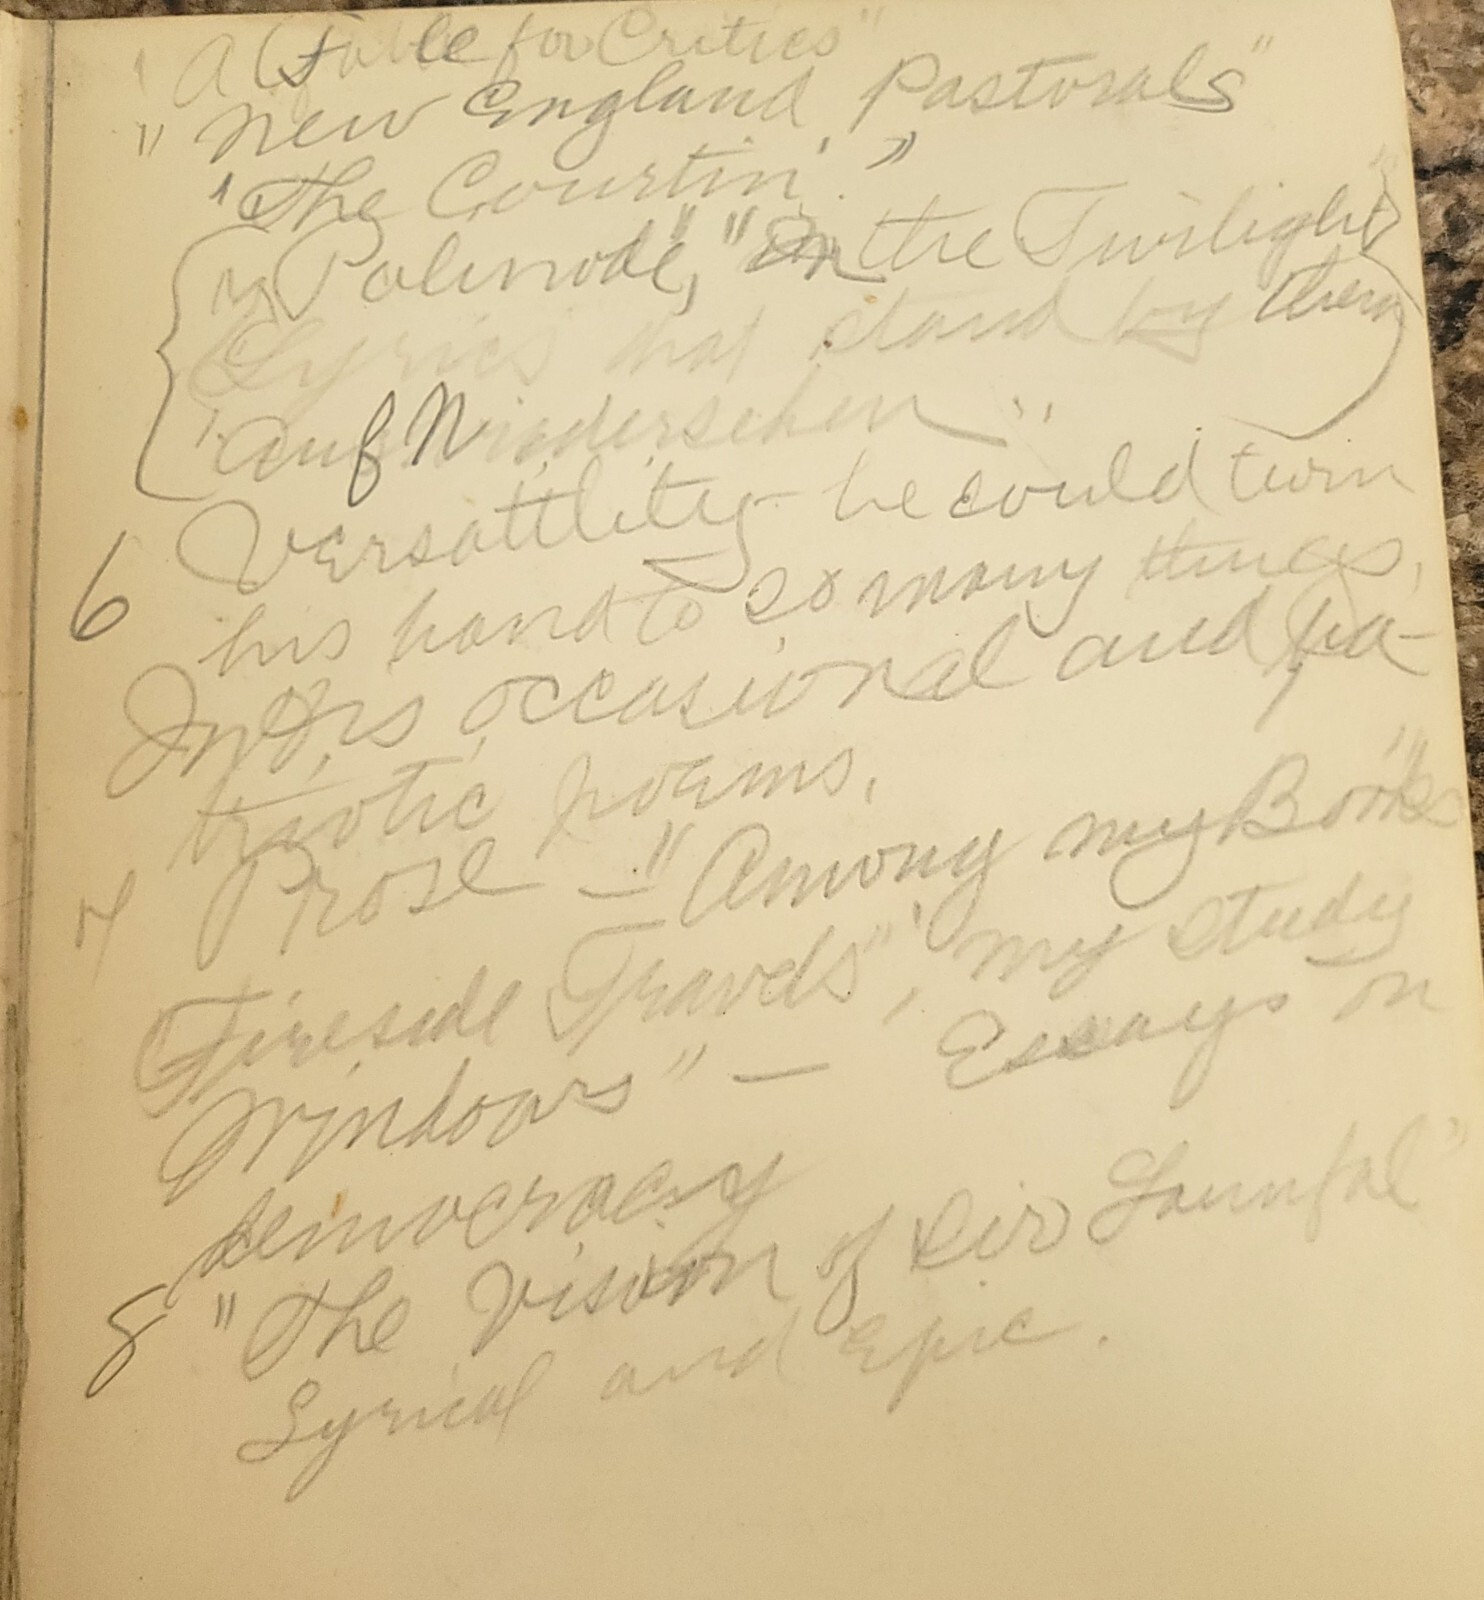 "A Fable for Critics"
"New England Pastorals"
"The Courtin'."
"Palinode," "In the Twilight"
Lyrics that stand by them
"Auf Wiedersehen"
6 Versatility - he could turn
his hand to so many things,
In his occasional and pa-
triotic poems.
7 Prose - "Among my Books"
Fireside Travels", "my study
Windows" - Essays on
democracy
8 "The Vision of Sir Launfal"
Lyrical and Epic.